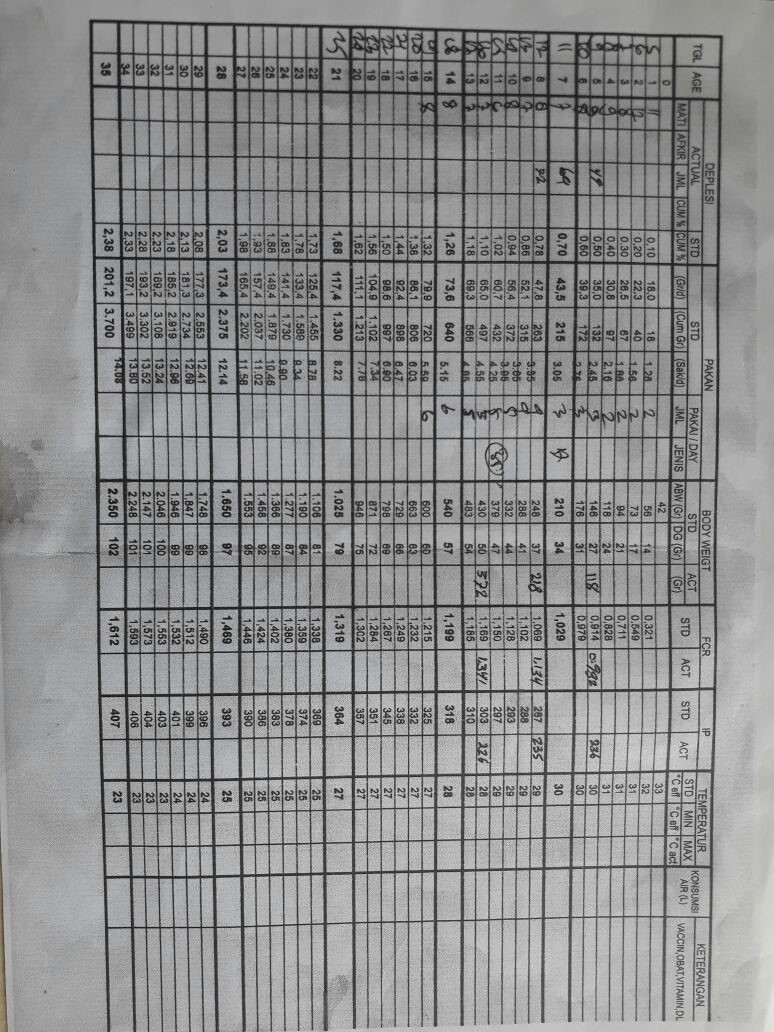 TGL AGE DEPLESI PAKAN BODY WEIGT FCR IP TEMPERATUR KONSUMSI AIR (L) KETERANGAN
ACTUAL STD STD PAKAI / DAY STD ACT STD ACT STD ACT STD MIN MAX
MATI AFKIR JML CUM % CUM % (Gr/d) (Cum Gr) (Sak/d) JML JENIS ABW (Gr) DG (Gr) (Gr) °C eff °C eff °C act VACCIN,OBAT,VITAMIN,DL
0 42 33
5 1 11 0,10 18,0 18 1.28 2 56 14 0,321 32
6 2 12 0,20 22,3 40 1.56 2 73 17 0,549 31
3 0,30 26,5 67 1.86 2 94 21 0,711 31
4 9 0,40 30,8 97 2.16 2 118 24 0,828 31
5 49 0,50 35,0 132 2.45 3 146 27 118 0,914 0.992 236 30
10 6 8 0,60 39,3 172 2.75 3 176 31 0,979 30
11 7 7 64 0,70 43,5 215 3.05 3 210 34 1,029 30
12 8 8 0,78 47,8 263 3.35 4 248 37 218 1,069 1.134 287 235 29
13 9 7 0,86 52,1 315 3.65 288 41 1,102 288 29
10 8 0,94 56,4 372 3.95 332 44 1,128 293 29
11 1,02 60,7 432 4.25 5 379 47 1,150 297 29
12 7 1,10 65,0 497 4.55 5 430 50 372 1,169 1.341 303 226 28
13 7 1,18 69,3 566 4.85 5 483 54 1,185 310 28
14 8 1,26 73,6 640 5.15 6 540 57 1,199 318 28
15 8 1,32 79,9 720 5.59 6 600 60 1,215 325 27
20 16 1,38 86,1 806 6.03 663 63 1,232 332 27
21 17 1,44 92,4 898 6.47 729 66 1,249 338 27
22 18 1,50 98,6 997 6.90 798 69 1,267 345 27
23 19 1,56 104,9 1.102 7.34 871 72 1,284 351 27
20 1,62 111,1 1.213 7.78 946 75 1,302 357 27
25 21 1,68 117,4 1.330 8.22 1.025 79 1,319 364 27
22 1,73 125,4 1.455 8.78 1.106 81 1,338 369 25
23 1,78 133,4 1.589 9.34 1.190 84 1,359 374 25
24 1,83 141,4 1.730 9.90 1.277 87 1,380 378 25
25 1,88 149,4 1.879 10.46 1.366 89 1,402 383 25
26 1,93 157,4 2.037 11.02 1.458 92 1,424 386 25
27 1,98 165,4 2.202 11.58 1.553 95 1,446 390 25
28 2,03 173,4 2.375 12.14 1.650 97 1,469 393 25
29 2,08 177,3 2.553 12.41 1.748 98 1,490 396 24
30 2,13 181,3 2.734 12.69 1.847 99 1,512 399 24
31 2,18 185,2 2.919 12.96 1.946 99 1,532 401 24
32 2,23 189,2 3.108 13.24 2.046 100 1,553 403 23
33 2,28 193,2 3.302 13.52 2.147 101 1,573 404 23
34 2,33 197,1 3.499 13.80 2.248 101 1,593 406 23
35 2,38 201,2 3.700 14.08 2.350 102 1,612 407 23